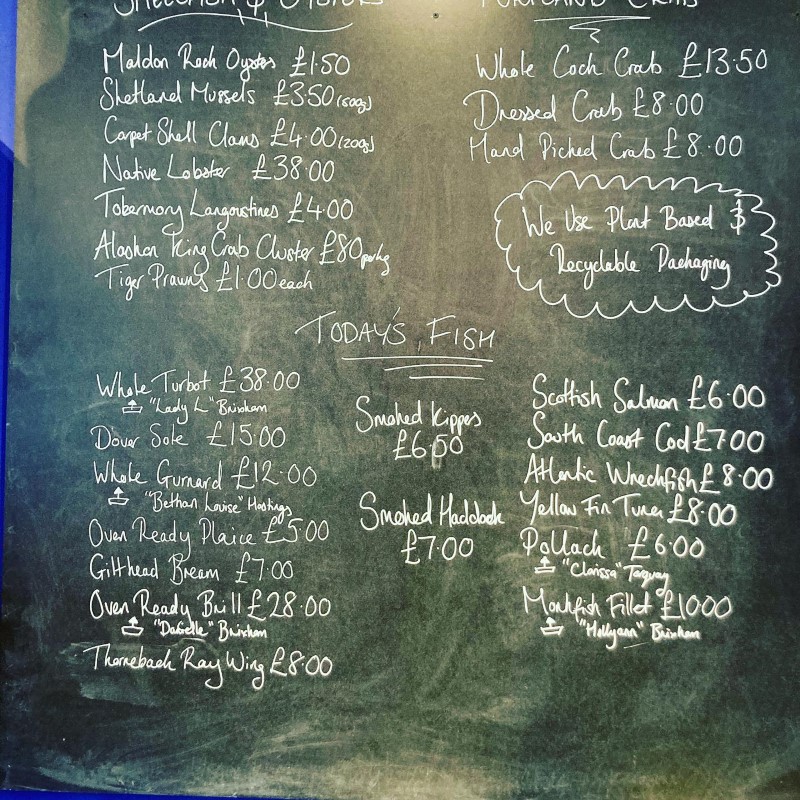 Shellfish & Oysters
Maldon Rock Oysters £1.50
Shetland Mussels £3.50 (500g)
Carpet Shell Clams £4.00 (200g)
Native Lobster £38.00
Tobermory Langoustines £4.00
Alaskan King Crab Cluster £80 per kg
Tiger Prawns £1.00 each
Portland Crabs
Whole Cock Crab £13.50
Dressed Crab £8.00
Hand Picked Crab £8.00
We Use Plant Based &
Recyclable Packaging
TODAY'S FISH
Whole Turbot £38.00
"Lady L" Brixham
Dover Sole £15.00
Whole Gurnard £12.00
"Bethan Louise" Hastings
Oven Ready Plaice £5.00
Gilthead Bream £7.00
Oven Ready Brill £28.00
"Danielle" Brixham
Thorneback Ray Wing £8.00
Smoked Kippers
£6.50
Smoked Haddock
£7.00
Scottish Salmon £6.00
South Coast Cod £7.00
Atlantic Wreckfish £8.00
Yellow Fin Tuna £8.00
Pollack £6.00
"Clarissa" Torquay
Monkfish Fillet £10.00
"Hollyann" Brixham